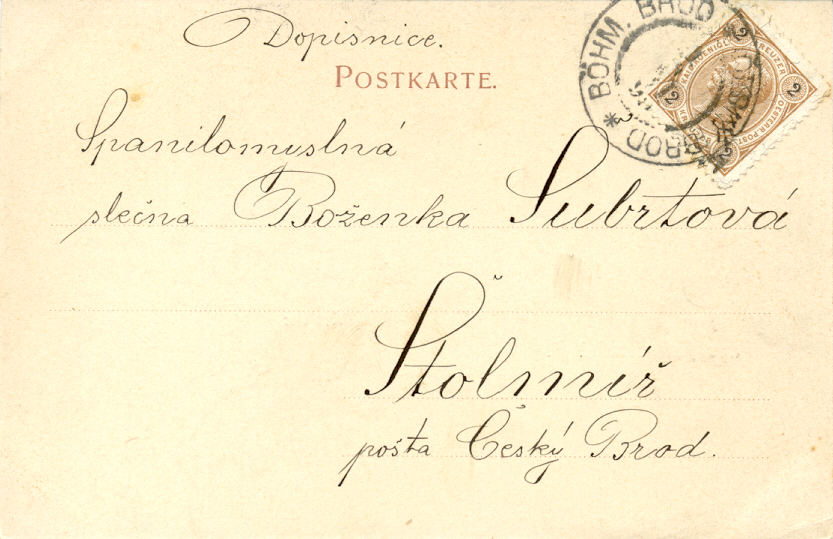 Dopisnice.
POSTKARTE.
BÖHM. BROD
BROD
2 2 2 2
KREUZER
OESTERR. POST
Spanilomyslná
slečna Boženka Šubrtová
Štolmíř
pošta Český Brod.